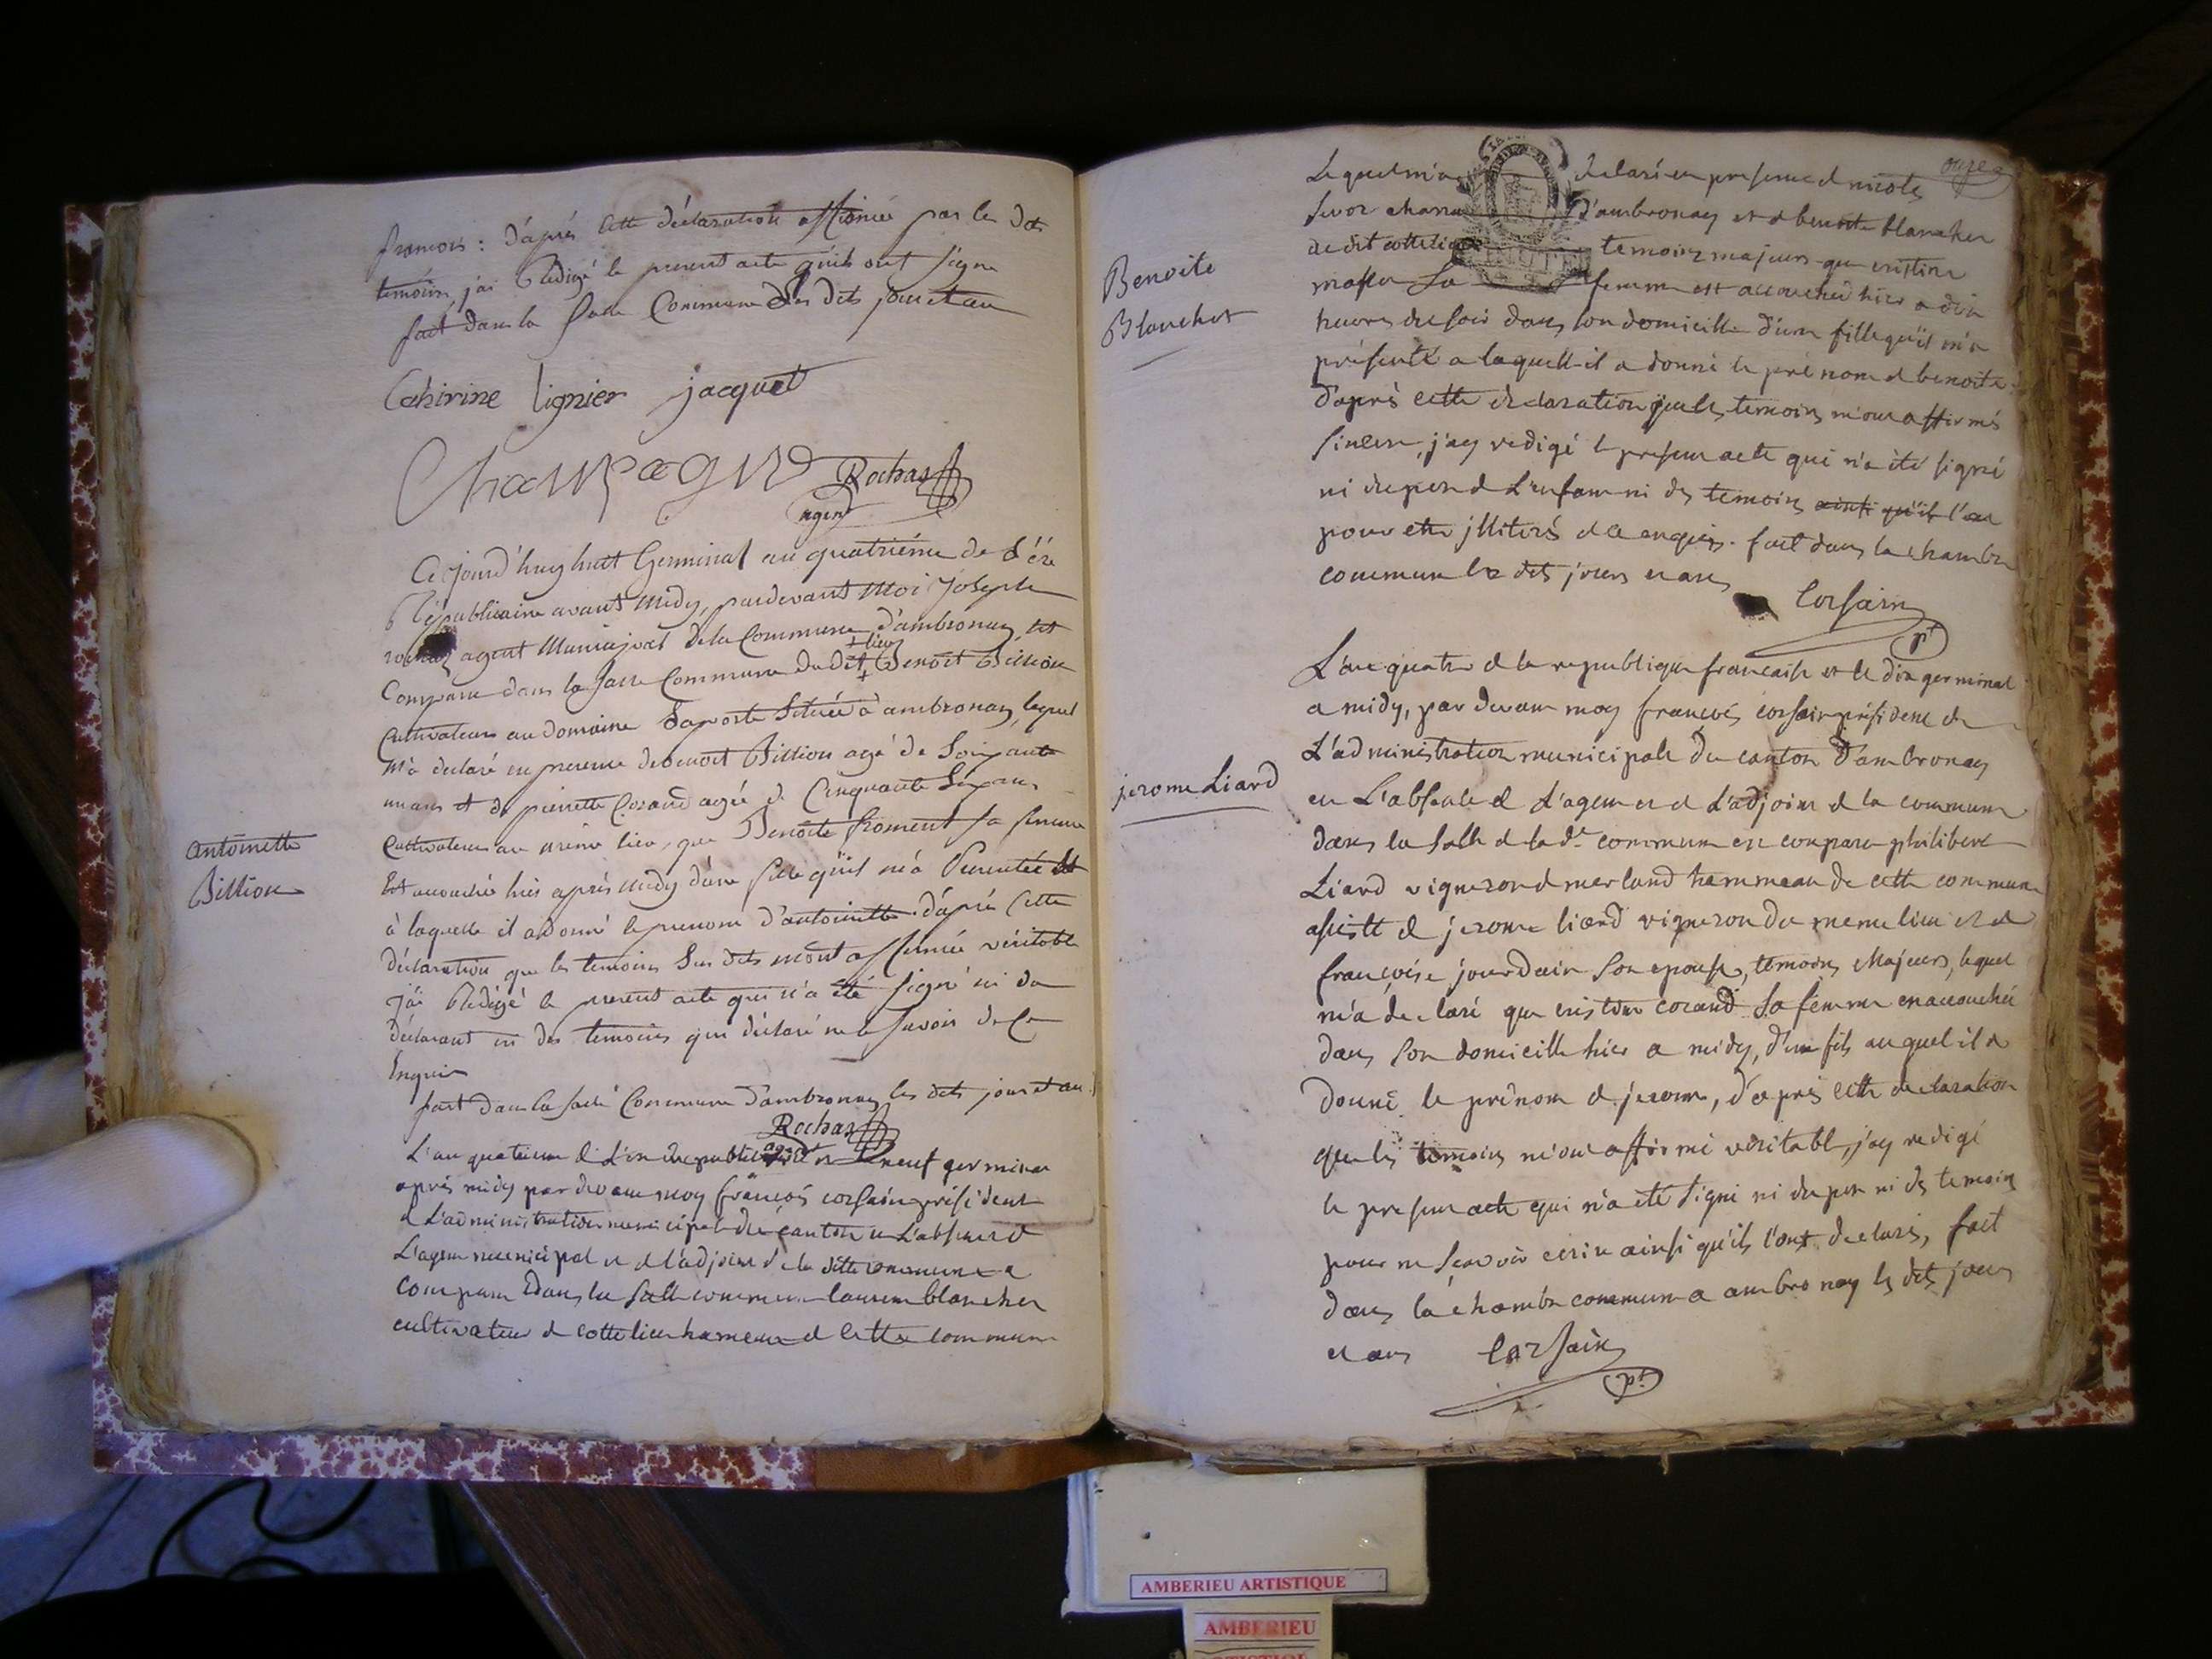 francois : d'aprés cette déclaration affirmée par les dits
temoins j'ai Rédigé le present acte qu'ils ont signe
fait dans la salle Commune les dits jour et an
Cathirine lignier jacquet
Champagne Rochas
agent
Cejourd'huy huit Germinal an quatriéme de L'ére
Républicaine avant midy, pardevant Moi Joseph
rochas agent Municipal de la Commune d'ambronay, est
+ lieu
Comparu dans la salle Commune du dit + Benoit Billion
Cultivateur au domaine Laporte Située à ambronay, lequel
m'a declaré en presence de benoit Billion agé de Soixante
un ans et de pierrette Cozand agée de Cinquante Six ans
Cultivateurs au même lieu, que Benoite froment sa femme
Est accouchée hier aprés midy d'une fille qu'il m'a Presentée et
à laquelle il a donné le prenom d'antoinette. d'aprés Cette
déclaration que les temoins Sus dits m'ont affirmée véritable
j'ai Rédigé le present acte qui n'a été signé ni du
déclarant ni des temoins qui déclaré ne le savoir de Ce
Enquis
fait dans la salle Commune d'ambronay les dits jour et an
Rochas
agent
antoinette
Billion
L'an quatrieme de L'ere republicaine et le neuf germinal
aprés midy par devant moy françois corsain président
de L'administration municipale du canton en L'absence de
L'agent municipal et de l'adjoint de la ditte commune a
comparu dans la salle commune laurent blanchet
cultivateur de cottelieu hameau de cette commune
onze
Le quel m'a declaré en presence de nicolas
d'ambronay et de benoite blanchet
de dit cottelieu temoins majeurs que cristine
sa femme est accouchée hier a dix
heures du soir dans son domicille d'une fille qu'il m'a
présenté a laquelle il a donné le prénom de benoite.
d'aprés cette declaration que les temoins m'ont affirmés
sincere, j'ay redigé le present acte qui n'a été signé
ni du pere de L'enfant ni des temoins ainsi qu'ils l'on
pour etre illiterés de ce enquis. fait dans la chambre
commune les dits jours et an
Corsain
pt
Benoite
Blanchet
L'an quatre de la republique francaise et le dix germinal
a midy, par devant moy françois corsain président de
L'administration municipale du canton d'ambronay
en L'absence de L'agent et de L'adjoint de la commune
dans la salle de la de commune est comparu philibert
Liard vigneron de merland hammeau de cette commune
assisté de jerome liard vigneron du meme lieu et de
françoise jourdain son epouse, temoins Majeurs, lequel
m'a declaré que cristine cozand sa femme en accouchée
dans son domicille hier a midy, d'un fils au quel il a
donné le prénom de jerome, d'aprés cette declaration
que les temoins m'ont affirmé véritable, j'ay redigé
le present acte qui n'a été signé ni du pere ni des temoins
pour ne sçavoir ecrire ainsi qu'ils l'ont declarés, fait
dans la chambre commune a ambronay les dits jours
et an Corsain
pt
jerome Liard
AMBERIEU ARTISTIQUE
AMBERIEU
ARTISTIQUE